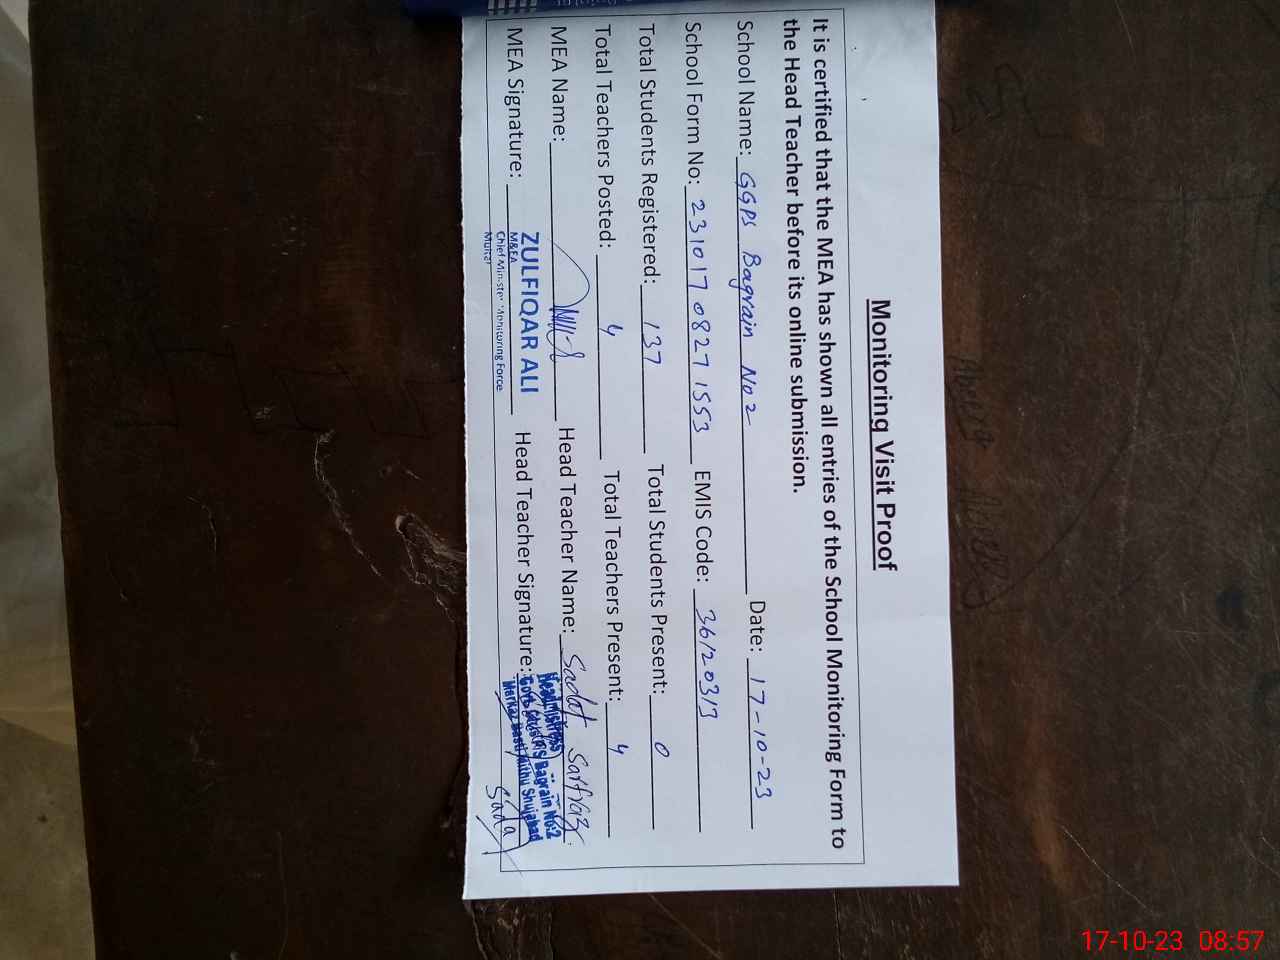 Monitoring Visit Proof
It is certified that the MEA has shown all entries of the School Monitoring Form to
the Head Teacher before its online submission.
School Name: GGPS Bagrain No 2 Date: 17-10-23
School Form No: 231017 0827 1553 EMIS Code: 36120313
Total Students Registered: 137 Total Students Present: 0
Total Teachers Posted: 4 Total Teachers Present: 4
MEA Name: Head Teacher Name: Sadat Sarfraz
MEA Signature: Head Teacher Signature:
ZULFIQAR ALI
M&EA
Chief Minister Monitoring Force
Multan
Headmistress
Govt. Girls P/S Bagrain No:2
Markaz Basti Mithu Shujabad
17-10-23 08:57